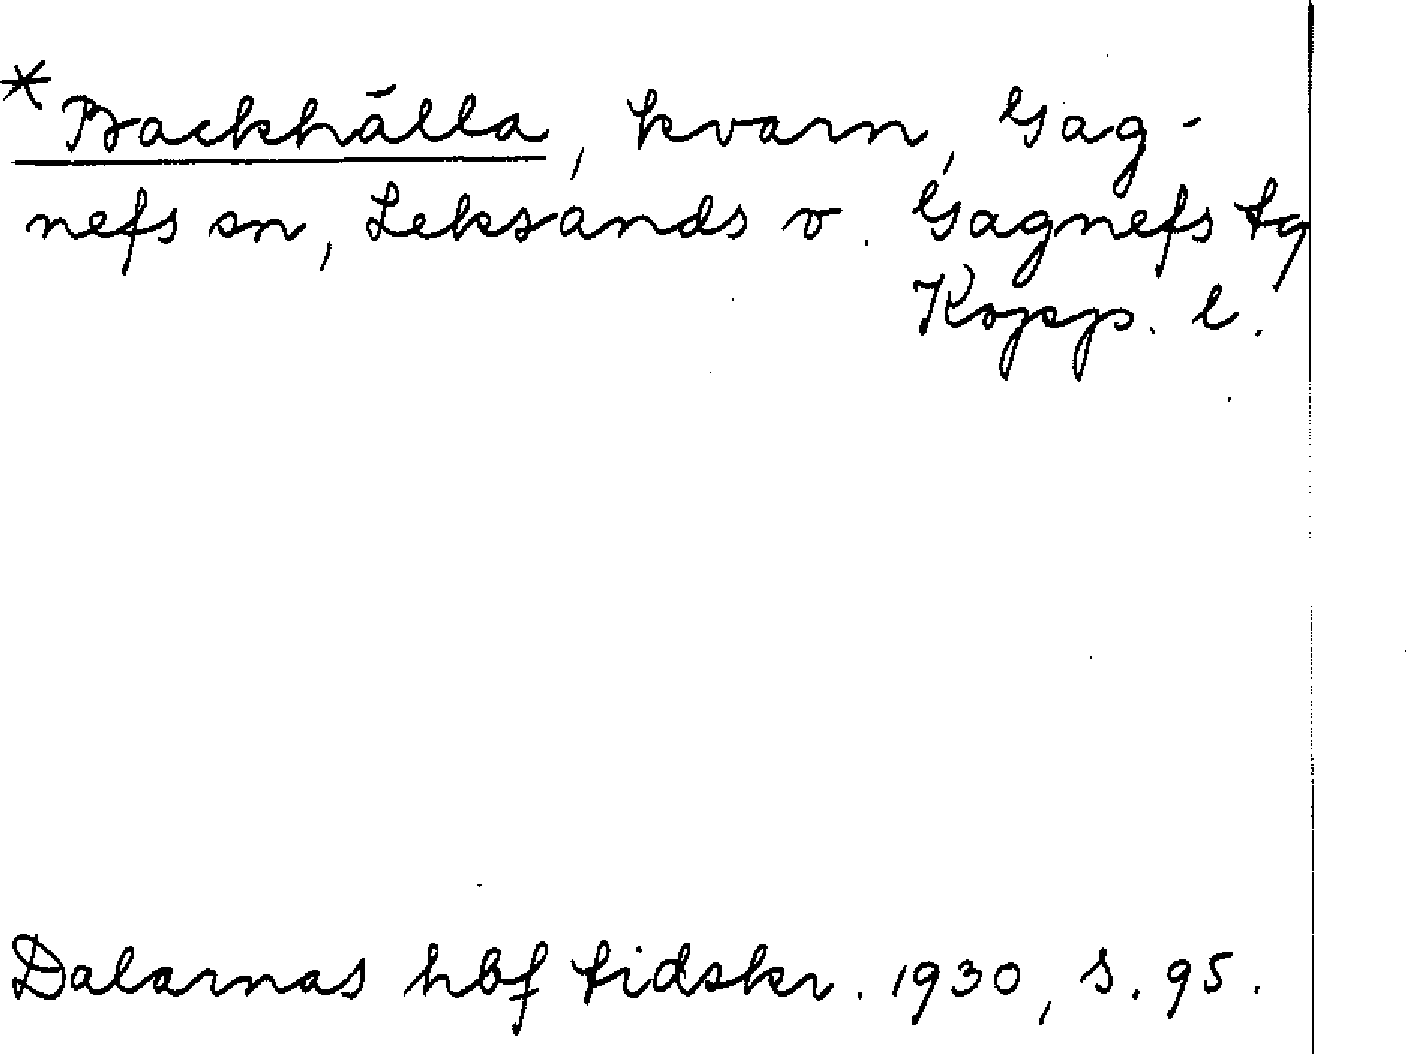 *Backhälla, kvarn, Gag-
nefs sn, Leksands o. Gagnefs tg
Kopp. l.
Dalarnas hbf tidskr. 1930, s. 95.